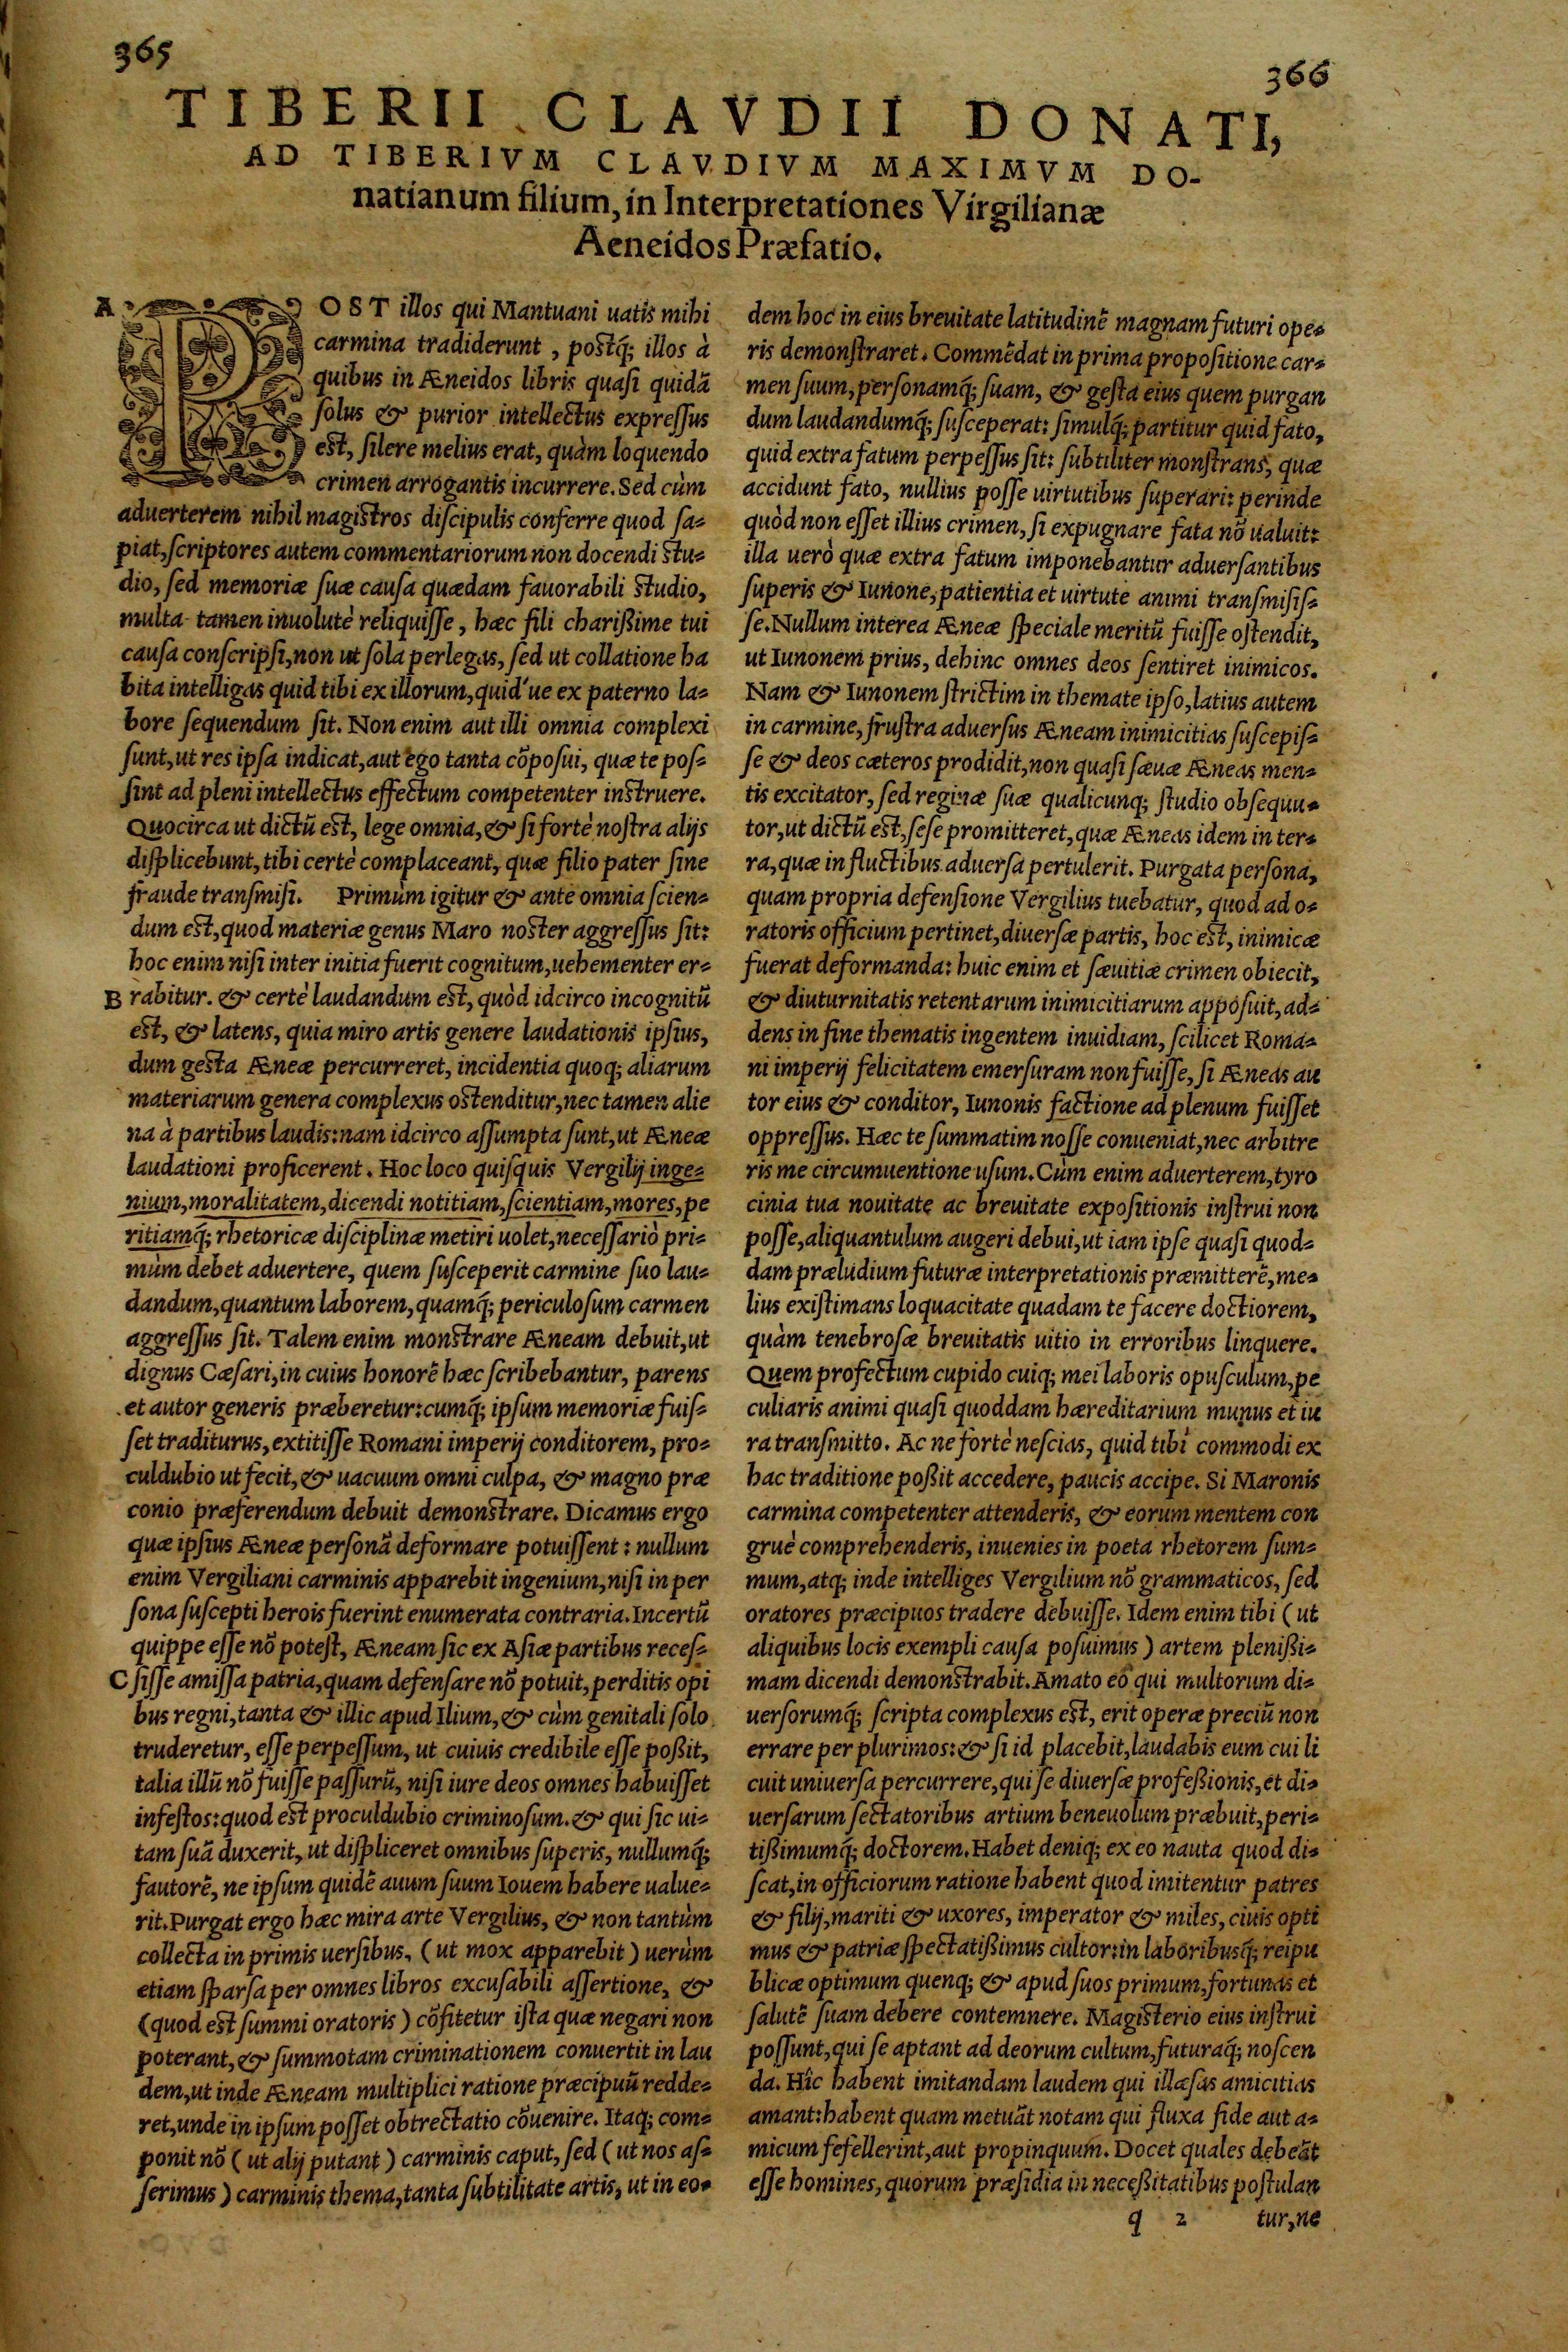 365
366
TIBERII CLAVDII DONATI,
AD TIBERIVM CLAVDIVM MAXIMVM DO-
natianum filium, in Interpretationes Virgilianæ
Aeneidos Præfatio.
A
POST illos qui Mantuani uatis mihi
carmina tradiderunt, postq́; illos à
quibus in Æneidos libris quasi quidã
solus & purior intellectus expressus
est, silere melius erat, quàm loquendo
crimen arrogantis incurrere. Sed cùm
aduerterem nihil magistros discipulis conferre quod sa-
piat, scriptores autem commentariorum non docendi stu-
dio, sed memoriæ suæ causa quædam fauorabili studio,
multa tamen inuolutè reliquisse, hæc fili charißime tui
causa conscripsi, non ut sola perlegas, sed ut collatione ha
bita intelligas quid tibi ex illorum, quid'ue ex paterno la-
bore sequendum sit. Non enim aut illi omnia complexi
sunt, ut res ipsa indicat, aut ego tanta cõposui, quæ te pos-
sint ad pleni intellectus effectum competenter instruere.
Quocirca ut dictũ est, lege omnia, & si fortè nostra alijs
displicebunt, tibi certè complaceant, quæ filio pater sine
fraude transmisi. Primùm igitur & ante omnia scien-
dum est, quod materiæ genus Maro noster aggressus sit:
hoc enim nisi inter initia fuerit cognitum, uehementer er-
B rabitur. & certè laudandum est, quòd idcirco incognitũ
est, & latens, quia miro artis genere laudationis ipsius,
dum gesta Æneæ percurreret, incidentia quoq; aliarum
materiarum genera complexus ostenditur, nec tamen alie
na à partibus laudis: nam idcirco assumpta sunt, ut Æneæ
laudationi proficerent. Hoc loco quisquis Vergilij inge-
nium, moralitatem, dicendi notitiam, scientiam, mores, pe
ritiamq́; rhetoricæ disciplinæ metiri uolet, necessariò pri-
mùm debet aduertere, quem susceperit carmine suo lau-
dandum, quantum laborem, quamq́; periculosum carmen
aggressus sit. Talem enim monstrare Æneam debuit, ut
dignus Cæsari, in cuius honorẽ hæc scribebantur, parens
et autor generis præberetur: cumq́; ipsum memoriæ fuis-
set traditurus, extitisse Romani imperij conditorem, pro-
culdubio ut fecit, & uacuum omni culpa, & magno præ
conio præferendum debuit demonstrare. Dicamus ergo
quæ ipsius Æneæ personã deformare potuissent: nullum
enim Vergiliani carminis apparebit ingenium, nisi in per
sona suscepti herois fuerint enumerata contraria. Incertũ
quippe esse nõ potest, Æneam sic ex Asiæ partibus reces-
C sisse amissa patria, quam defensare nõ potuit, perditis opi
bus regni, tanta & illic apud Ilium, & cùm genitali solo
truderetur, esse perpessum, ut cuiuis credibile esse poßit,
talia illũ nõ fuisse passurũ, nisi iure deos omnes habuisset
infestos: quod est proculdubio criminosum. & qui sic ui-
tam suã duxerit, ut displiceret omnibus superis, nullumq́;
fautorẽ, ne ipsum quidẽ auum suum Iouem habere ualue-
rit. Purgat ergo hæc mira arte Vergilius, & non tantùm
collecta in primis uersibus, (ut mox apparebit) uerùm
etiam sparsa per omnes libros excusabili assertione, &
(quod est summi oratoris) cõfitetur ista quæ negari non
poterant, & summotam criminationem conuertit in lau
dem, ut inde Æneam multiplici ratione præcipuũ redde-
ret, unde in ipsum posset obtrectatio cõuenire. Itaq; com-
ponit nõ (ut alij putant) carminis caput, sed (ut nos as-
serimus) carminis thema, tanta subtilitate artis, ut in eo-
dem hoc in eius breuitate latitudinẽ magnam futuri ope-
ris demonstraret. Commẽdat in prima propositione car-
men suum, personamq́; suam, & gesta eius quem purgan
dum laudandumq́; susceperat: simulq́; partitur quid fato,
quid extra fatum perpessus sit: subtiliter monstrans, quæ
accidunt fato, nullius posse uirtutibus superari: perinde
quòd non esset illius crimen, si expugnare fata nõ ualuit:
illa uerò quæ extra fatum imponebantur aduersantibus
superis & Iunone, patientia et uirtute animi transmisis-
se. Nullum interea Æneæ speciale meritũ fuisse ostendit,
ut Iunonem prius, dehinc omnes deos sentiret inimicos.
Nam & Iunonem strictim in themate ipso, latius autem
in carmine, frustra aduersus Æneam inimicitias suscepis-
se & deos cæteros prodidit, non quasi sæuæ Æneas men-
tis excitator, sed reginæ suæ qualicunq; studio obsequu-
tor, ut dictũ est, sese promitteret, quæ Æneas idem in ter-
ra, quæ in fluctibus aduersa pertulerit. Purgata persona,
quam propria defensione Vergilius tuebatur, quod ad o-
ratoris officium pertinet, diuersæ partis, hoc est, inimicæ
fuerat deformanda: huic enim et sæuitiæ crimen obiecit,
& diuturnitatis retentarum inimicitiarum apposuit, ad-
dens in fine thematis ingentem inuidiam, scilicet Roma-
ni imperij felicitatem emersuram non fuisse, si Æneas au
tor eius & conditor, Iunonis factione ad plenum fuisset
oppressus. Hæc te summatim nosse conueniat, nec arbitre
ris me circumuentione usum. Cùm enim aduerterem, tyro
cinia tua nouitate ac breuitate expositionis instrui non
posse, aliquantulum augeri debui, ut iam ipse quasi quod-
dam præludium futuræ interpretationis præmitterẽ, me-
lius existimans loquacitate quadam te facere doctiorem,
quàm tenebrosæ breuitatis uitio in erroribus linquere.
Quem profectum cupido cuiq; mei laboris opusculum, pe
culiaris animi quasi quoddam hæreditarium munus et iu
ra transmitto. Ac ne fortè nescias, quid tibi commodi ex
hac traditione poßit accedere, paucis accipe. Si Maronis
carmina competenter attenderis, & eorum mentem con
gruè comprehenderis, inuenies in poeta rhetorem sum-
mum, atq; inde intelliges Vergilium nõ grammaticos, sed
oratores præcipuos tradere debuisse. Idem enim tibi (ut
aliquibus locis exempli causa posuimus) artem plenißi-
mam dicendi demonstrabit. Amato eo qui multorum di-
uersorumq́; scripta complexus est, erit operæ preciũ non
errare per plurimos: & si id placebit, laudabis eum cui li
cuit uniuersa percurrere, qui se diuersæ profeßionis, et di-
uersarum sectatoribus artium beneuolum præbuit, peri-
tißimumq́; doctorem. Habet deniq; ex eo nauta quod di-
scat, in officiorum ratione habent quod imitentur patres
& filij, mariti & uxores, imperator & miles, ciuis opti
mus & patriæ spectatißimus cultor: in laboribusq́; reipu
blicæ optimum quenq; & apud suos primum, fortunas et
salutẽ suam debere contemnere. Magisterio eius instrui
possunt, qui se aptant ad deorum cultum, futuraq́; noscen
da. Hîc habent imitandam laudem qui illæsas amicitias
amant: habent quam metuãt notam qui fluxa fide aut a-
micum fefellerint, aut propinquum. Docet quales debeãt
esse homines, quorum præsidia in neceßitatibus postulan
q 2 tur, ne